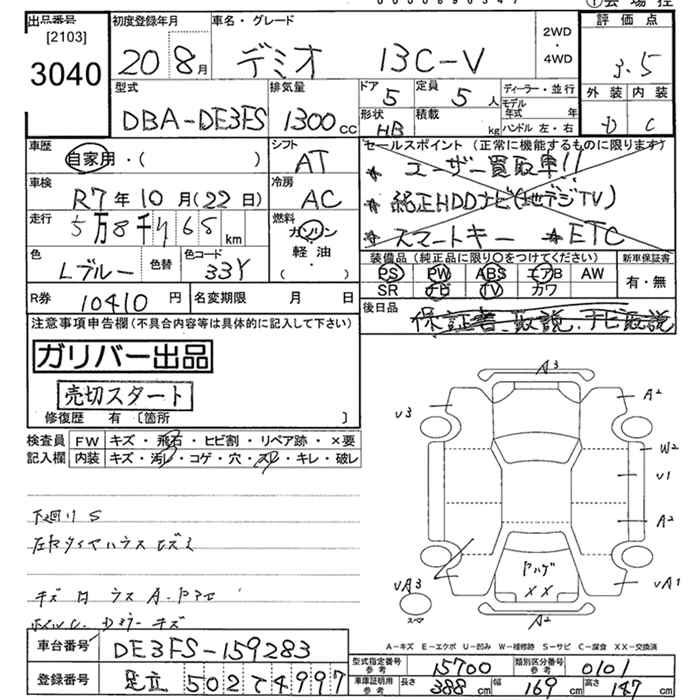 出品番号 初度登録年月 車名・グレード 2WD・4WD 評価点
[2103]
3040 20 8月 デミオ 13C-V 3.5
型式 排気量 ドア 5 定員 5人 ディーラー・並行 外装 内装
DBA-DE3FS 1300cc 形状 HB 積載 kg モデル年式 年 ハンドル 左・右 D C
車歴 自家用・( ) シフト AT セールスポイント (正常に機能するものに限ります)
* ユーザー買取車!!
車検 R7年10月(22日) 冷房 AC * 純正HDDナビ(地デジTV)
走行 5万8千 km 燃料 ガソリン・軽油・( ) * スマートキー *ETC
色 Lブルー 色替 色コード 33Y 装備品 (純正品に限り〇をつけてください) 新車保証書
PS PW ABS エアB AW 有・無
R券 10410円 名変期限 月 日 SR ナビ TV カワ
注意事項申告欄(不具合内容等は具体的に記入して下さい) 後日品 保証書、取説、ナビ取説
ガリバー出品
売切スタート
修復歴 有 〔箇所 〕
検査員記入欄 FW キズ・飛石・ヒビ割・リペア跡・×要
内装 キズ・汚レ・コゲ・穴・スレ・キレ・破レ
A3
V3 A2
W2
V1
A2
下廻りS
ヤハゲ
XX
VA3 VA1
スペア A2
A-キズ E-エクボ U-凹み W-補修跡 S-サビ C-腐食 XX-交換済
車台番号 DE3FS-159283
型式指定番号 参考 15700 類別区分番号 参考 0101
登録番号 足立 502 て 4997
車庫証明用 参考 長さ 388cm 幅 169cm 高さ 147cm